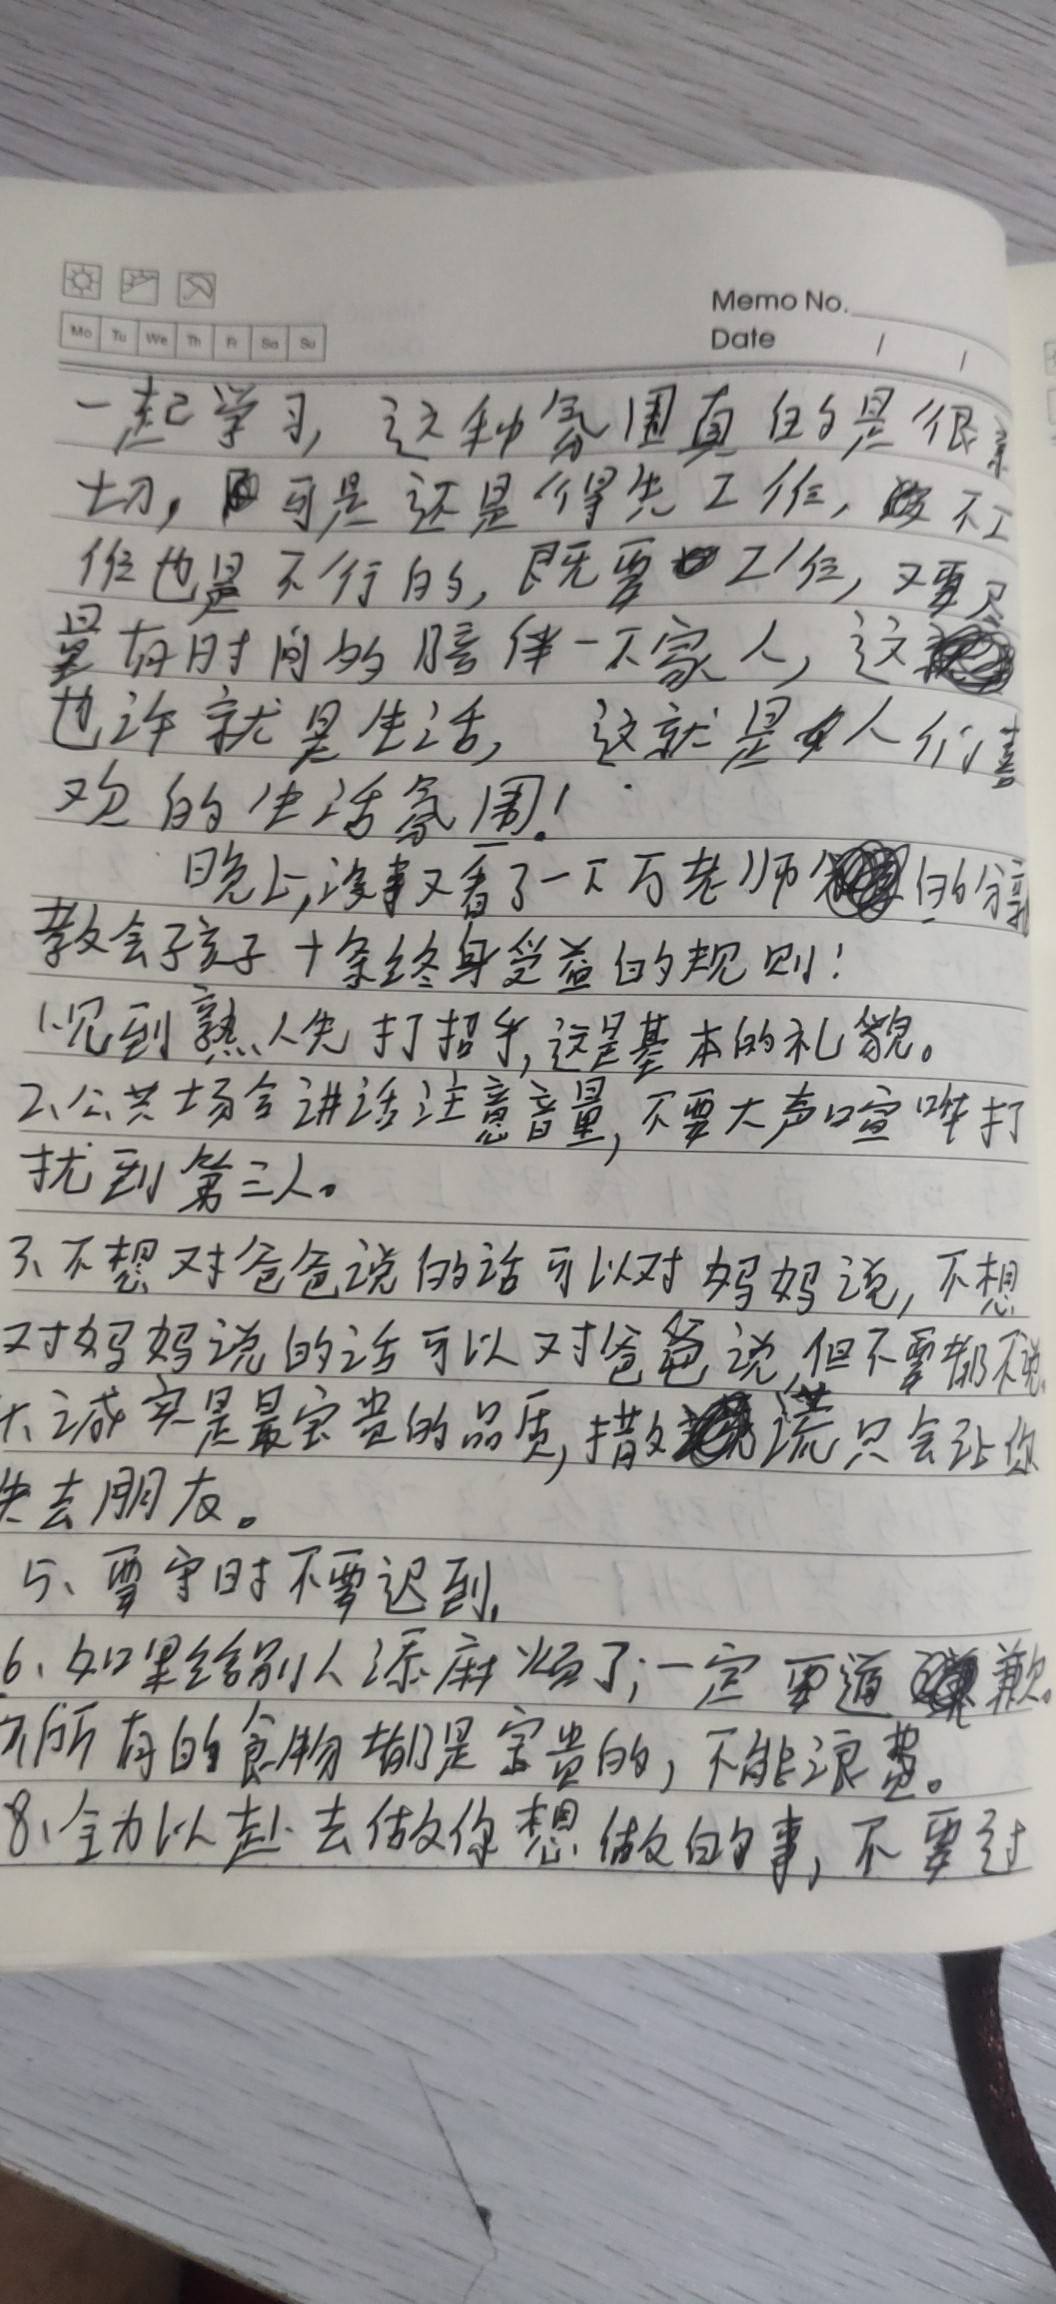 Memo No.
Date / /
Mo Tu We Th Fr Sa Su
一起学习，这种氛围真的是很亲
切，可是还是得先工作，不工
作也是不行的，既要工作，又要尽
量有时间的陪伴一下家人，这
也许就是生活，这就是人们喜
欢的生活氛围！
晚上，没事又看了一下万老师的分享
教会孩子十条终身受益的规则！
1、见到熟人先打招乎，这是基本的礼貌。
2、公共场合讲话注意音量，不要大声喧哗打
扰到第三人。
3、不想对爸爸说的话可以对妈妈说，不想
对妈妈说的话可以对爸爸说，但不要都不说。
诚实是最宝贵的品质，撒谎只会让你
失去朋友。
5、要守时不要迟到，
6、如果给别人添麻烦了，一定要道歉。
所有的食物都是宝贵的，不能浪费。
8、全力以赴去做你想做的事，不要过